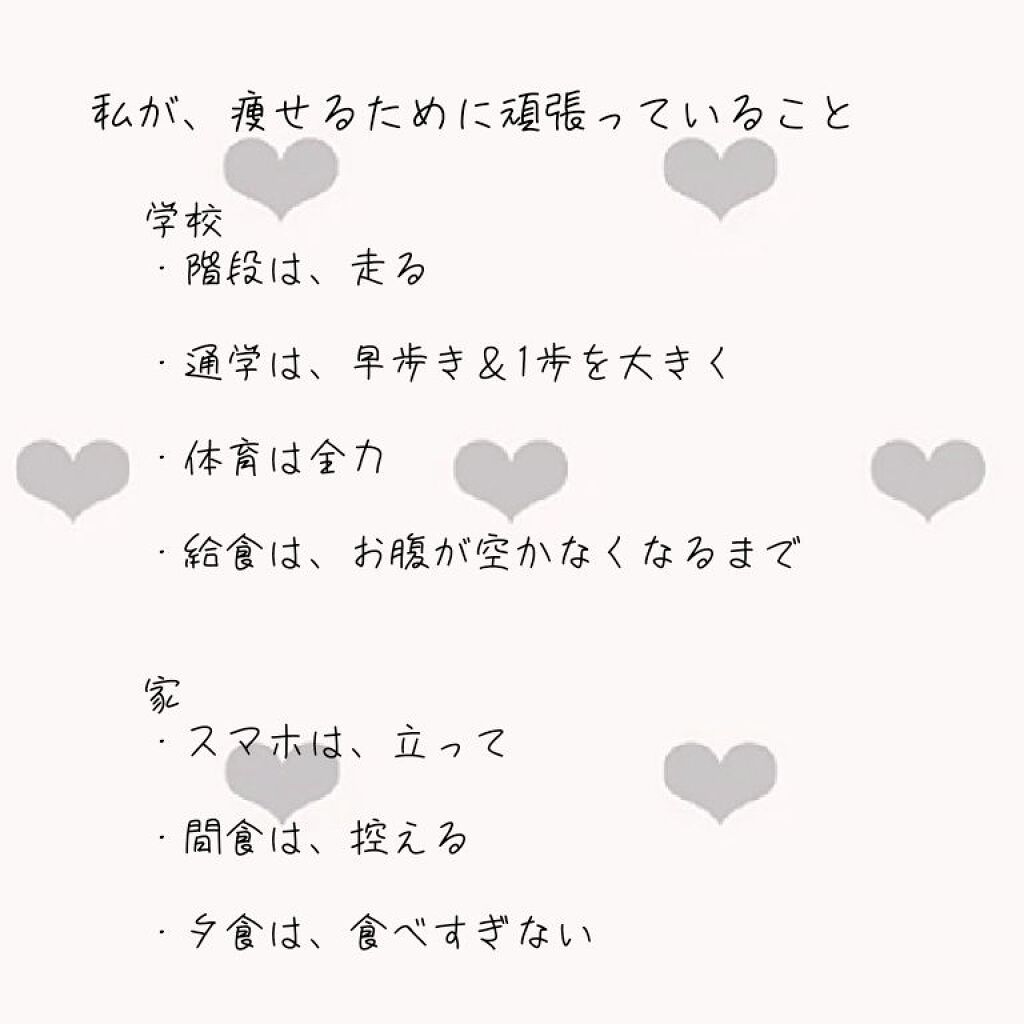 私が、痩せるために頑張っていること
学校
・階段は、走る
・通学は、早歩き&1歩を大きく
・体育は全力
・給食は、お腹が空かなくなるまで
家
・スマホは、立って
・間食は、控える
・夕食は、食べすぎない